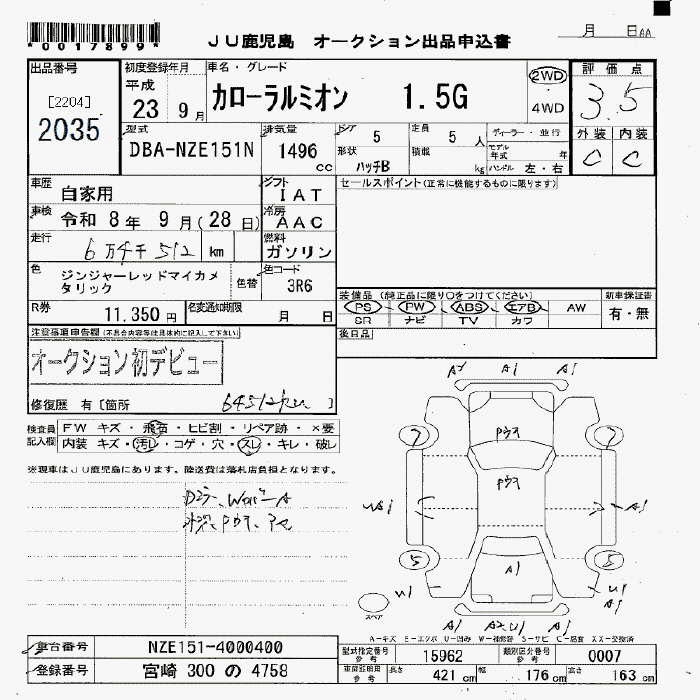 *0017899*
JU鹿児島 オークション出品申込書
月 日AA
出品番号
[2204]
2035
初度登録年月
平成
23 9月
車名・グレード
カローラルミオン 1.5G
2WD
4WD
評価点
3.5
外装 内装
C C
型式
DBA-NZE151N
排気量
1496
cc
ドア 5
形状 ハッチB
定員 5 人
積載 kg
ディーラー・並行
モデル年式 年
ハンドル 左・右
車歴
自家用
シフト
IAT
セールスポイント(正常に機能するものに限ります)
車検
令和 8年 9月(28日)
冷房
AAC
走行
6万4千512 km
燃料
ガソリン
色
ジンジャーレッドマイカメタリック
色替
色コード
3R6
R券
11,350円
名変通知期限
月 日
装備品(純正品に限り○をつけてください)
PS PW ABS エアB AW
SR ナビ TV カワ
新車保証書
有・無
後日品
注意事項申告欄(不具合内容等は具体的に記入して下さい)
オークション初デビュー
修復歴 有[箇所 64512km ]
検査員記入欄
FW キズ・飛石・ヒビ割・リペア跡・×要
内装 キズ・汚レ・コゲ・穴・スレ・キレ・破レ
※現車はJU鹿児島にあります。陸送費は落札店負担となります。
A2 A1 A1
7 7
Pウス
Pウス
A1
5 5
U1 U1
A1
A1 A2U1 A1
スペア
A-キズ E-エクボ U-凹み W-補修跡 S-サビ C-腐食 XX-交換済
車台番号 NZE151-4000400
登録番号 宮崎 300 の 4758
型式指定番号 参考 15962
類別区分番号 参考 0007
車両証明用 参考
長さ 421 cm
幅 176 cm
高さ 163 cm